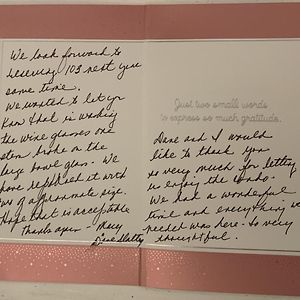 We look forward to
reserving 103 next year
same time.
We wanted to let you
know that in washing
the wine glasses one
stem broke on the
large bowl glass. We
have replaced it with
two of approximate size.
Hope that is acceptable
Thanks again - Macy
Dave
Just two small words
to express so much gratitude.
Dave and I would
like to thank you
so very much for letting
us enjoy the condo.
We had a wonderful
time and everything we
needed was here - so very
thoughtful.